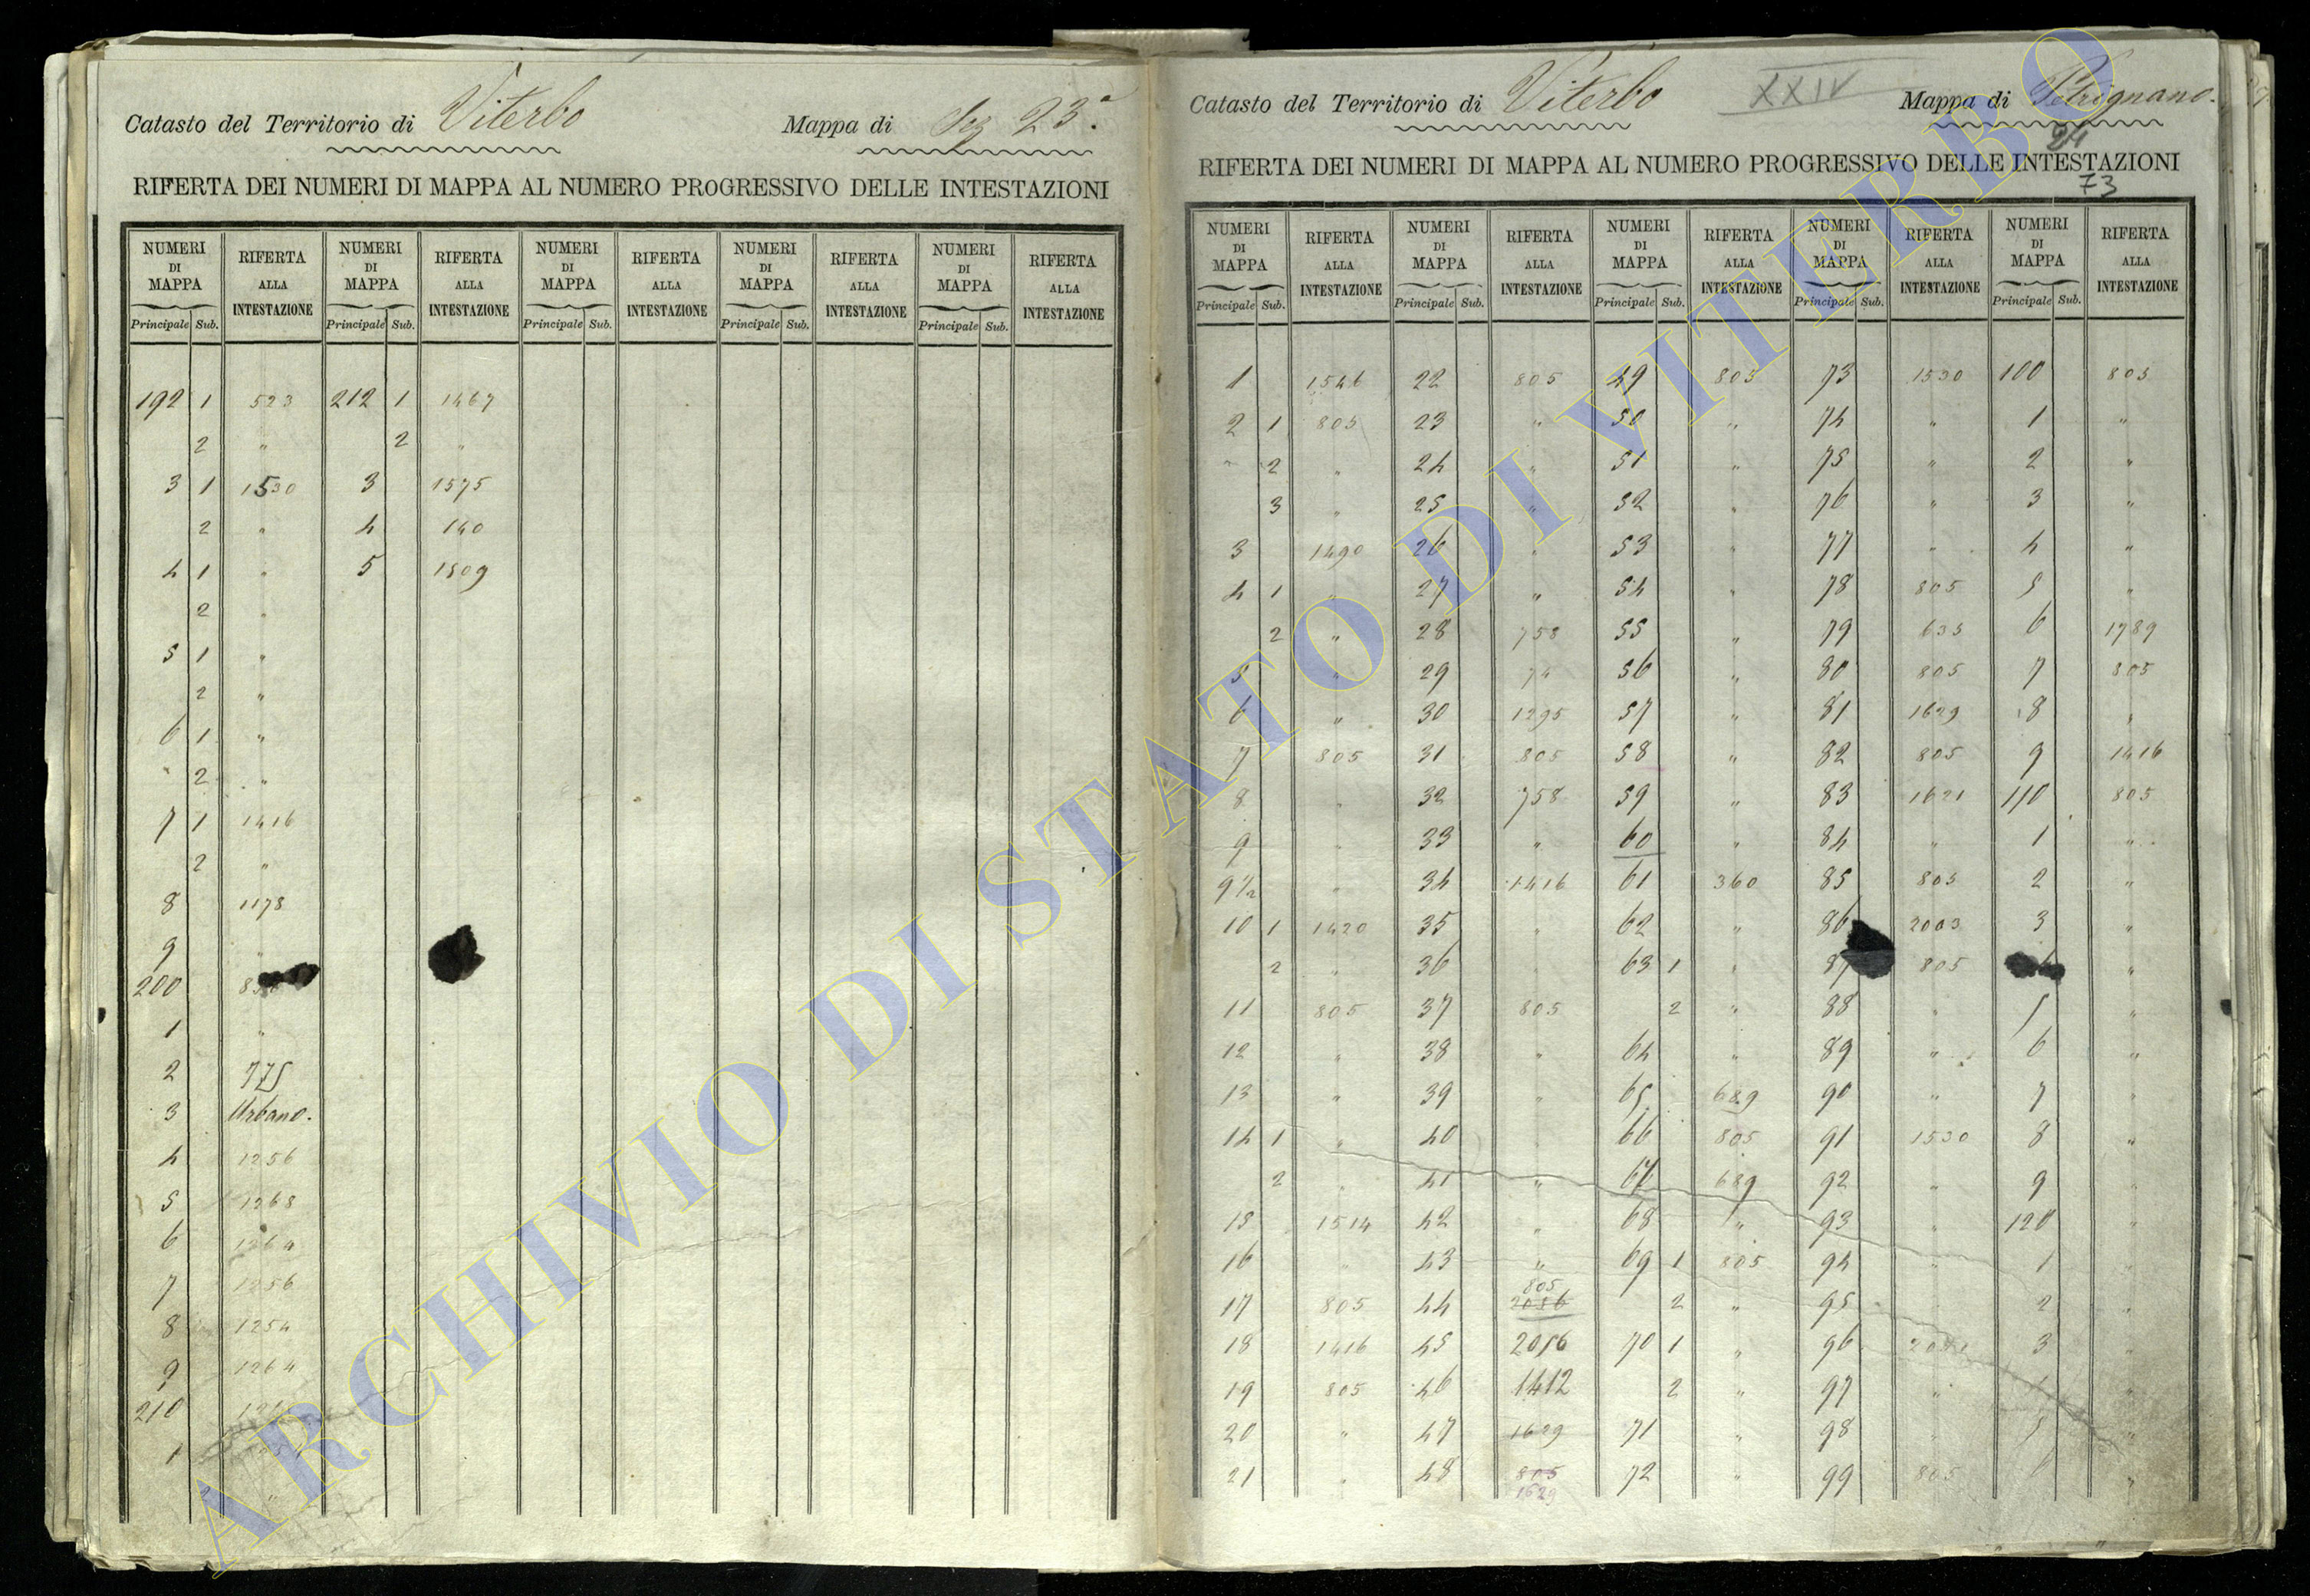 Catasto del Territorio di Viterbo Mappa di Sez 23ª
RIFERTA DEI NUMERI DI MAPPA AL NUMERO PROGRESSIVO DELLE INTESTAZIONI
NUMERI DI MAPPA RIFERTA ALLA INTESTAZIONE NUMERI DI MAPPA RIFERTA ALLA INTESTAZIONE NUMERI DI MAPPA RIFERTA ALLA INTESTAZIONE NUMERI DI MAPPA RIFERTA ALLA INTESTAZIONE NUMERI DI MAPPA RIFERTA ALLA INTESTAZIONE
Principale Sub. Principale Sub. Principale Sub. Principale Sub. Principale Sub.
192 1 523 212 1 1467
2 " 2 "
3 1 1530 3 1575
2 " 4 140
4 1 " 5 1809
2 "
5 1 "
2 "
6 1 "
2 "
7 1 1416
2 "
8 1178
9 "
200
1 "
2 775
3 Urbano.
4 1256
5 1268
6 1264
7 1256
8 1254
9 1264
210
1
Catasto del Territorio di Viterbo XXIV Mappa di Petrignano.
24
RIFERTA DEI NUMERI DI MAPPA AL NUMERO PROGRESSIVO DELLE INTESTAZIONI
73
NUMERI DI MAPPA RIFERTA ALLA INTESTAZIONE NUMERI DI MAPPA RIFERTA ALLA INTESTAZIONE NUMERI DI MAPPA RIFERTA ALLA INTESTAZIONE NUMERI DI MAPPA RIFERTA ALLA INTESTAZIONE NUMERI DI MAPPA RIFERTA ALLA INTESTAZIONE
Principale Sub. Principale Sub. Principale Sub. Principale Sub. Principale Sub.
1 1546 22 805 49 805 73 1530 100 805
2 1 805 23 " 50 " 74 " 1 "
" 2 " 24 " 51 " 75 " 2 "
3 " 25 " 52 " 76 " 3 "
3 1490 26 " 53 " 77 " 4 "
4 1 " 27 " 54 " 78 805 5 "
2 " 28 758 55 " 79 635 6 1789
5 " 29 74 56 " 80 805 7 805
6 " 30 1295 57 " 81 1629 8 "
7 805 31 805 58 " 82 805 9 1416
8 " 32 758 59 " 83 1621 110 805
9 " 33 " 60 " 84 " 1 "
9½ " 34 1416 61 360 85 805 2 "
10 1 1420 35 " 62 " 86 2003 3 "
2 " 36 " 63 1 " 87 805 "
11 805 37 805 2 " 88 " 5 "
12 " 38 " 64 " 89 " 6 "
13 " 39 " 65 689 90 " 7 "
14 1 " 40 " 66 805 91 1530 8 "
2 " 41 " 67 689 92 " 9 "
15 1514 42 " 68 " 93 " 120 "
16 " 43 " 69 1 805 94 " 1 "
805
17 805 44 2086 2 " 95 " 2 "
18 1416 45 2016 70 1 " 96 3 "
19 805 46 1412 2 " 97 " "
20 " 47 1629 71 " 98 " 5 "
21 " 48 805 72 " 99 805 "
1629
ARCHIVIO DI STATO DI VITERBO